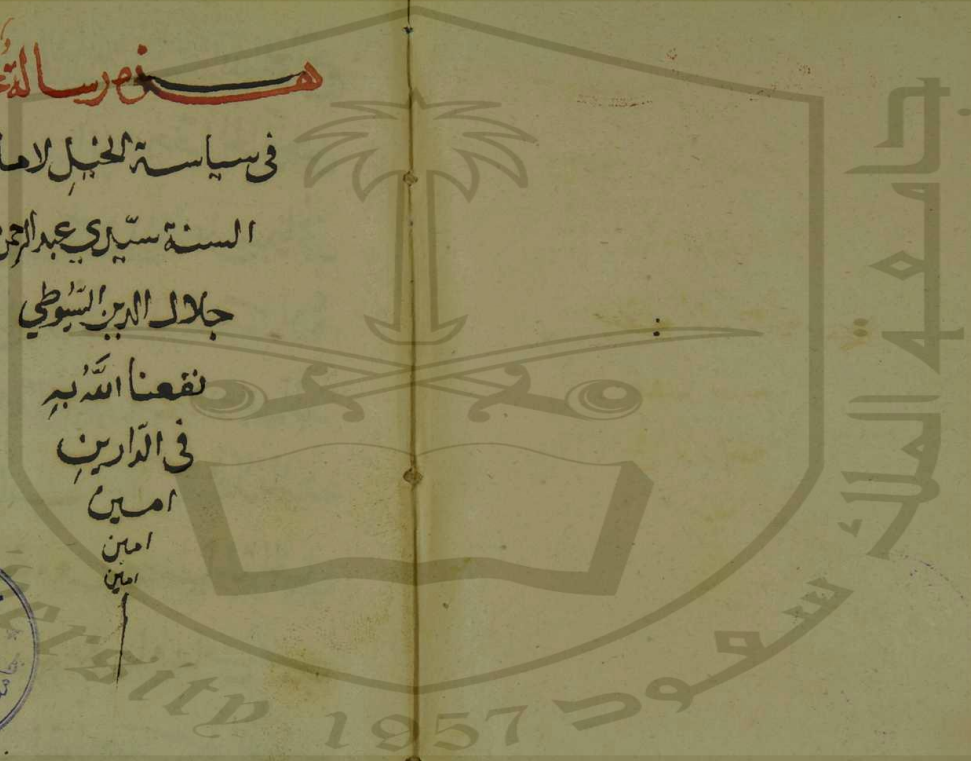 هذه رسالة
في سياسة الخيل لاما
السنة سيّدي عبد الرحمن
جلال الدين السّيوطي
نفعنا اللّه به
في الدّارين
امين
امين
امين
جامعة الملك سعود
ersity 1957